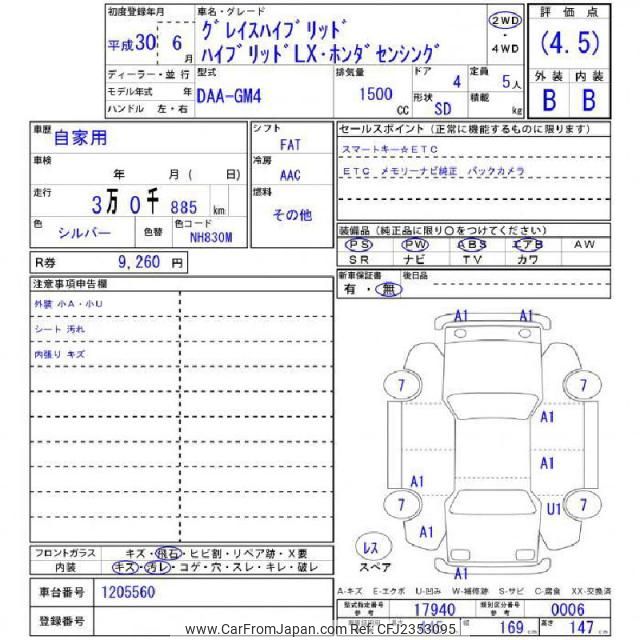 初度登録年月 車名・グレード 評価点
平成30 6月 グレイスハイブリッド 2WD (4.5)
ハイブリッドLX・ホンダセンシング ・ 4WD
ディーラー・並行 型式 排気量 ドア 4 定員 5人 外装 内装
モデル年式 年 DAA-GM4 1500 cc 形状 SD 積載 kg B B
ハンドル 左・右
車歴 自家用 シフト FAT セールスポイント(正常に機能するものに限ります)
車検 年 月( 日) 冷房 AAC スマートキー☆ETC
走行 3万0千885km 燃料 その他 ETC メモリーナビ純正 バックカメラ
色 シルバー 色替 色コード NH830M
装備品(純正品に限り○をつけてください)
PS PW ABS エアB AW
SR ナビ TV カワ
R券 9,260 円
新車保証書 後日品
有・無
注意事項申告欄
外装 小A・小U
シート 汚れ
内張り キズ
A1 A1
7 7
A1
A1
A1
7 7
U1
A1
レス
スペア
A1
フロントガラス キズ・飛石・ヒビ割・リペア跡・X要
内装 キズ・汚レ・コゲ・穴・スレ・キレ・破レ
A-キズ E-エクボ U-凹み W-補修跡 S-サビ C-腐食 XX-交換済
車台番号 1205560
型式指定番号 17940 類別区分番号 0006
登録番号
169 cm 高さ 147 cm
www.CarFromJapan.com Ref:CFJ2353095